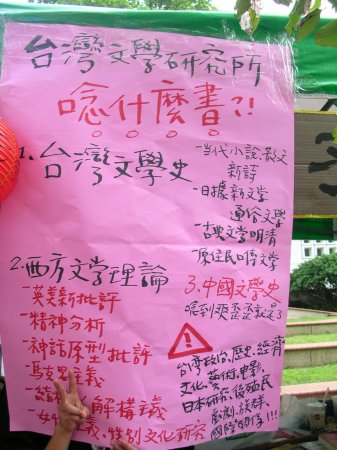 台灣文學研究所
唸什麼書?!
1. 台灣文學史
-當代小說、散文
新詩
-日據新文學
通俗文學
-古典文學明清
-原住民口傳文學
2. 西方文學理論
-英美新批評
-精神分析
-神話原型批評
-馬克思主義
解構主義
性別文化研究
3. 中國文學史
⚠
台灣政治、歷史、經濟
文化、藝術、電影、
日本研究、後殖民
戲劇、族群、
國際關係!!!